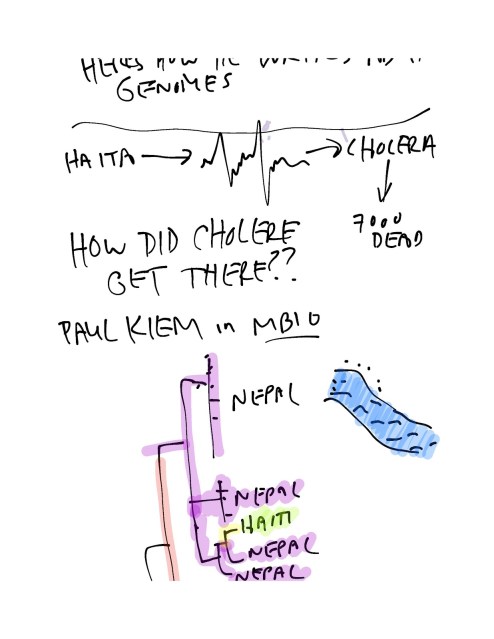 GENOMES
HAITA → → CHOLERA
7000
DEAD
HOW DID CHOLERE
GET THERE??
PAUL KIEM in MBIO
NEPAL
NEPAL
HAITI
NEPAL
NEPAL